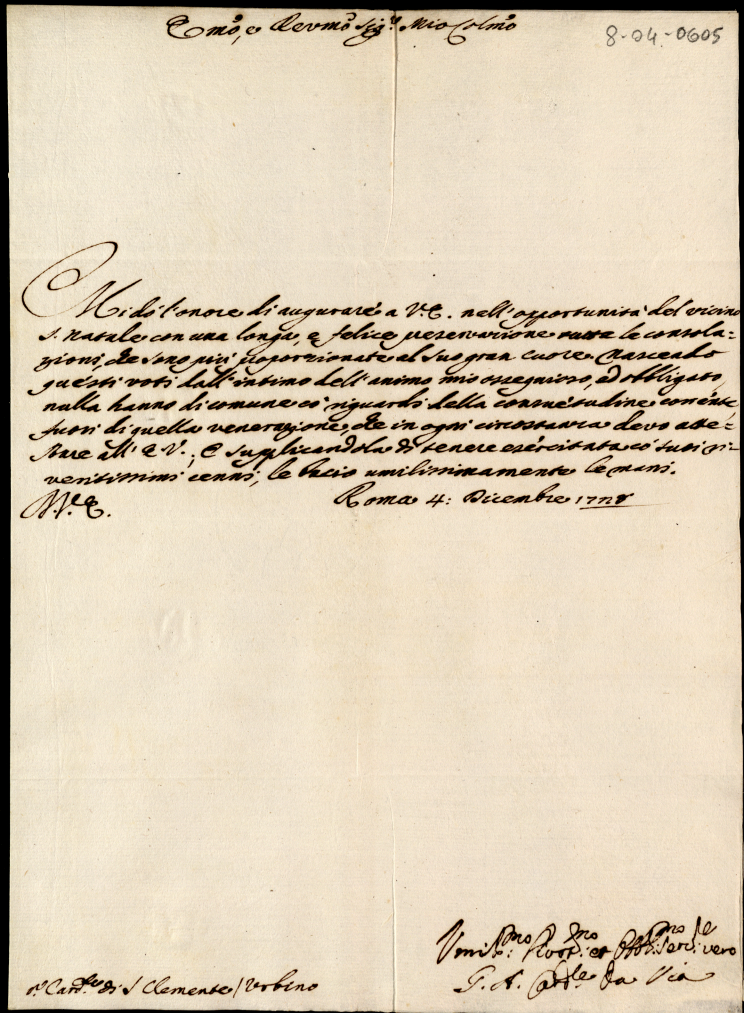 Emo, e Revmo Sigr Mio Colmo
8-04-0605
Mi dò l'onore di augurare à V. E. nell'opportunità del vicino
S. Natale con una longa, e felice preservazione tutte le consola-
zioni, che sono più proporzionate al suo gran cuore. Nascendo
questi voti dall'intimo dell'animo mio ossequioso, ed obbligato,
nulla hanno di comune cò riguardi della consuetudine corrente
fuori di quella venerazione, che in ogni circostanza devo atte-
stare all'E. V.; E supplicandola di tenere esercitata cò suoi ri-
veritissimi cenni, le bacio umilissimamente le mani.
V. E. Roma 4: Dicembre
Umilmo Servre vero
G. A. Cardle Da Via
Cardle di S Clemente / Urbino